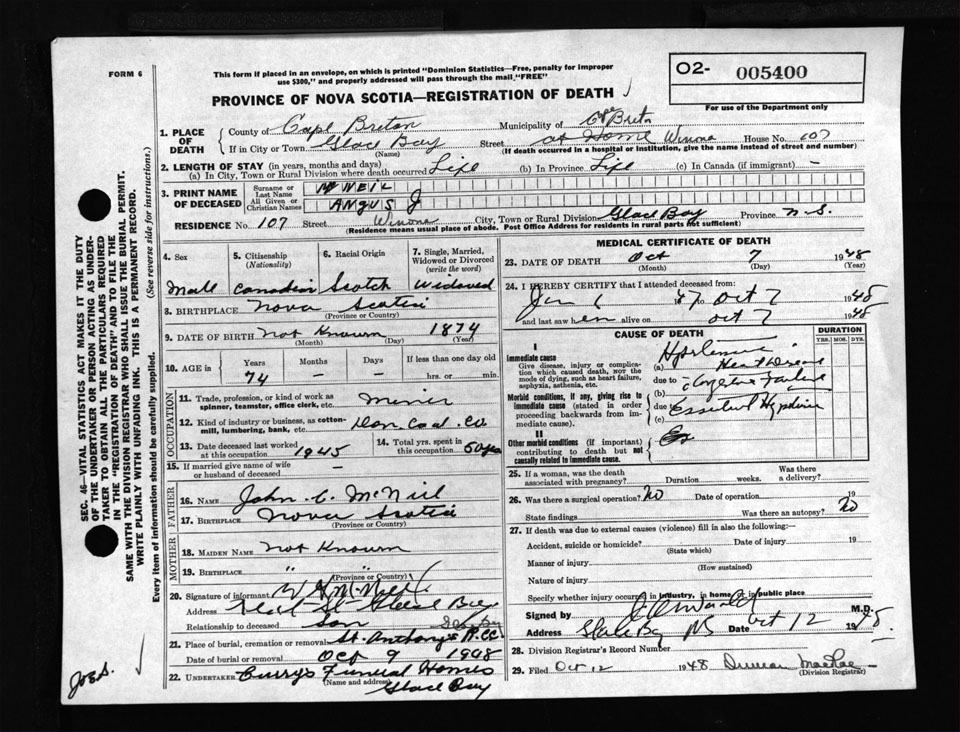 FORM 6
This form if placed in an envelope, on which is printed "Dominion Statistics—Free, penalty for improper
use $300," and properly addressed will pass through the mail "FREE"
O2- 005400
For use of the Department only
PROVINCE OF NOVA SCOTIA—REGISTRATION OF DEATH
1. PLACE OF DEATH
County of Cape Breton Municipality of C. Breton
If in City or Town Glace Bay (Name) Street at Home Winona House No. 107
(If death occurred in a hospital or institution, give the name instead of street and number)
2. LENGTH OF STAY (in years, months and days)
(a) In City, Town or Rural Division where death occurred Life (b) In Province Life (c) In Canada (if immigrant) —
3. PRINT NAME OF DECEASED
Surname or Last Name McNEIL
All Given or Christian Names ANGUS J
RESIDENCE No. 107 Street Winona City, Town or Rural Division Glace Bay Province N.S.
(Residence means usual place of abode. Post Office Address for residents in rural parts not sufficient)
4. Sex Male
5. Citizenship (Nationality) Canadian
6. Racial Origin Scotch
7. Single, Married, Widowed or Divorced (write the word) Widowed
8. BIRTHPLACE Nova Scotia
(Province or Country)
9. DATE OF BIRTH Not Known 1874
(Month) (Day) (Year)
10. AGE in Years 74 Months — Days — If less than one day old hrs. or min.
OCCUPATION
11. Trade, profession, or kind of work as spinner, teamster, office clerk, etc. Miner
12. Kind of industry or business, as cotton-mill, lumbering, bank, etc. Dom Coal. Co.
13. Date deceased last worked at this occupation 1945
14. Total yrs. spent in this occupation 50 yrs
15. If married give name of wife or husband of deceased —
FATHER
16. NAME John C. McNeil
17. BIRTHPLACE Nova Scotia
(Province or Country)
MOTHER
18. MAIDEN NAME Not Known
19. BIRTHPLACE " "
(Province or Country)
20. Signature of informant
Address Glace Bay
Relationship to deceased Son
21. Place of burial, cremation or removal St. Anthony's R.C.C.
Date of burial or removal Oct 9 1948
22. UNDERTAKER Curry's Funeral Homes
(Name and address) Glace Bay
MEDICAL CERTIFICATE OF DEATH
23. DATE OF DEATH Oct 7 1948
(Month) (Day) (Year)
24. I HEREBY CERTIFY that I attended deceased from:
Jan 47 to Oct 7 1948
and last saw h im alive on Oct 7 1948
CAUSE OF DEATH
DURATION
YRS. MOS. DYS.
I
Immediate cause
Give disease, injury or complication which caused death, not the mode of dying, such as heart failure, asphyxia, asthenia, etc.
(a) Hypertensive
Heart Disease
due to
(b) Congestive Failure
Morbid conditions, if any, giving rise to immediate cause (stated in order proceeding backwards from immediate cause).
due to
(c) Essential Hypertension
II
Other morbid conditions (if important) contributing to death but not causally related to immediate cause.
25. If a woman, was the death associated with pregnancy? Duration weeks. Was there a delivery?
26. Was there a surgical operation? No Date of operation 19
State findings Was there an autopsy? No
27. If death was due to external causes (violence) fill in also the following:—
Accident, suicide or homicide? Date of injury 19
(State which)
Manner of injury
(How sustained)
Nature of injury
Specify whether injury occurred in industry, in home or in public place
Signed by M.D.
Address Glace Bay NS Date Oct 12 1948
28. Division Registrar's Record Number
29. Filed Oct 12 1948 Duncan MacRae
(Division Registrar)
SEC. 46—VITAL STATISTICS ACT MAKES IT THE DUTY
OF THE UNDERTAKER OR PERSON ACTING AS UNDER-
TAKER TO OBTAIN ALL THE PARTICULARS REQUIRED
IN THE "REGISTRATION OF DEATH" AND TO FILE THE
SAME WITH THE DIVISION REGISTRAR WHO SHALL ISSUE THE BURIAL PERMIT.
WRITE PLAINLY WITH UNFADING INK. THIS IS A PERMANENT RECORD.
(See reverse side for instructions.)
Every item of information should be carefully supplied.